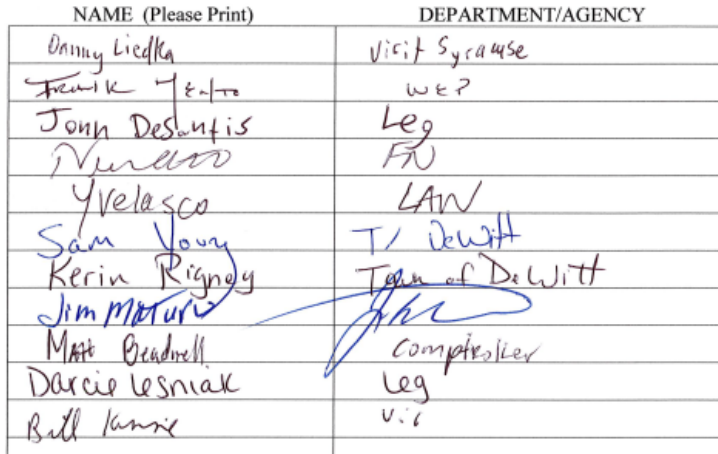 NAME (Please Print) DEPARTMENT/AGENCY
Danny Liedka Visit Syracuse
Frank WEP
John DeSantis Leg
FN
Yvelasco LAW
Sam Young T/ DeWitt
Kerin Rigney Town of DeWitt
Jim Maturo
Matt Beadnell Comptroller
Darcie Lesniak Leg
Bill